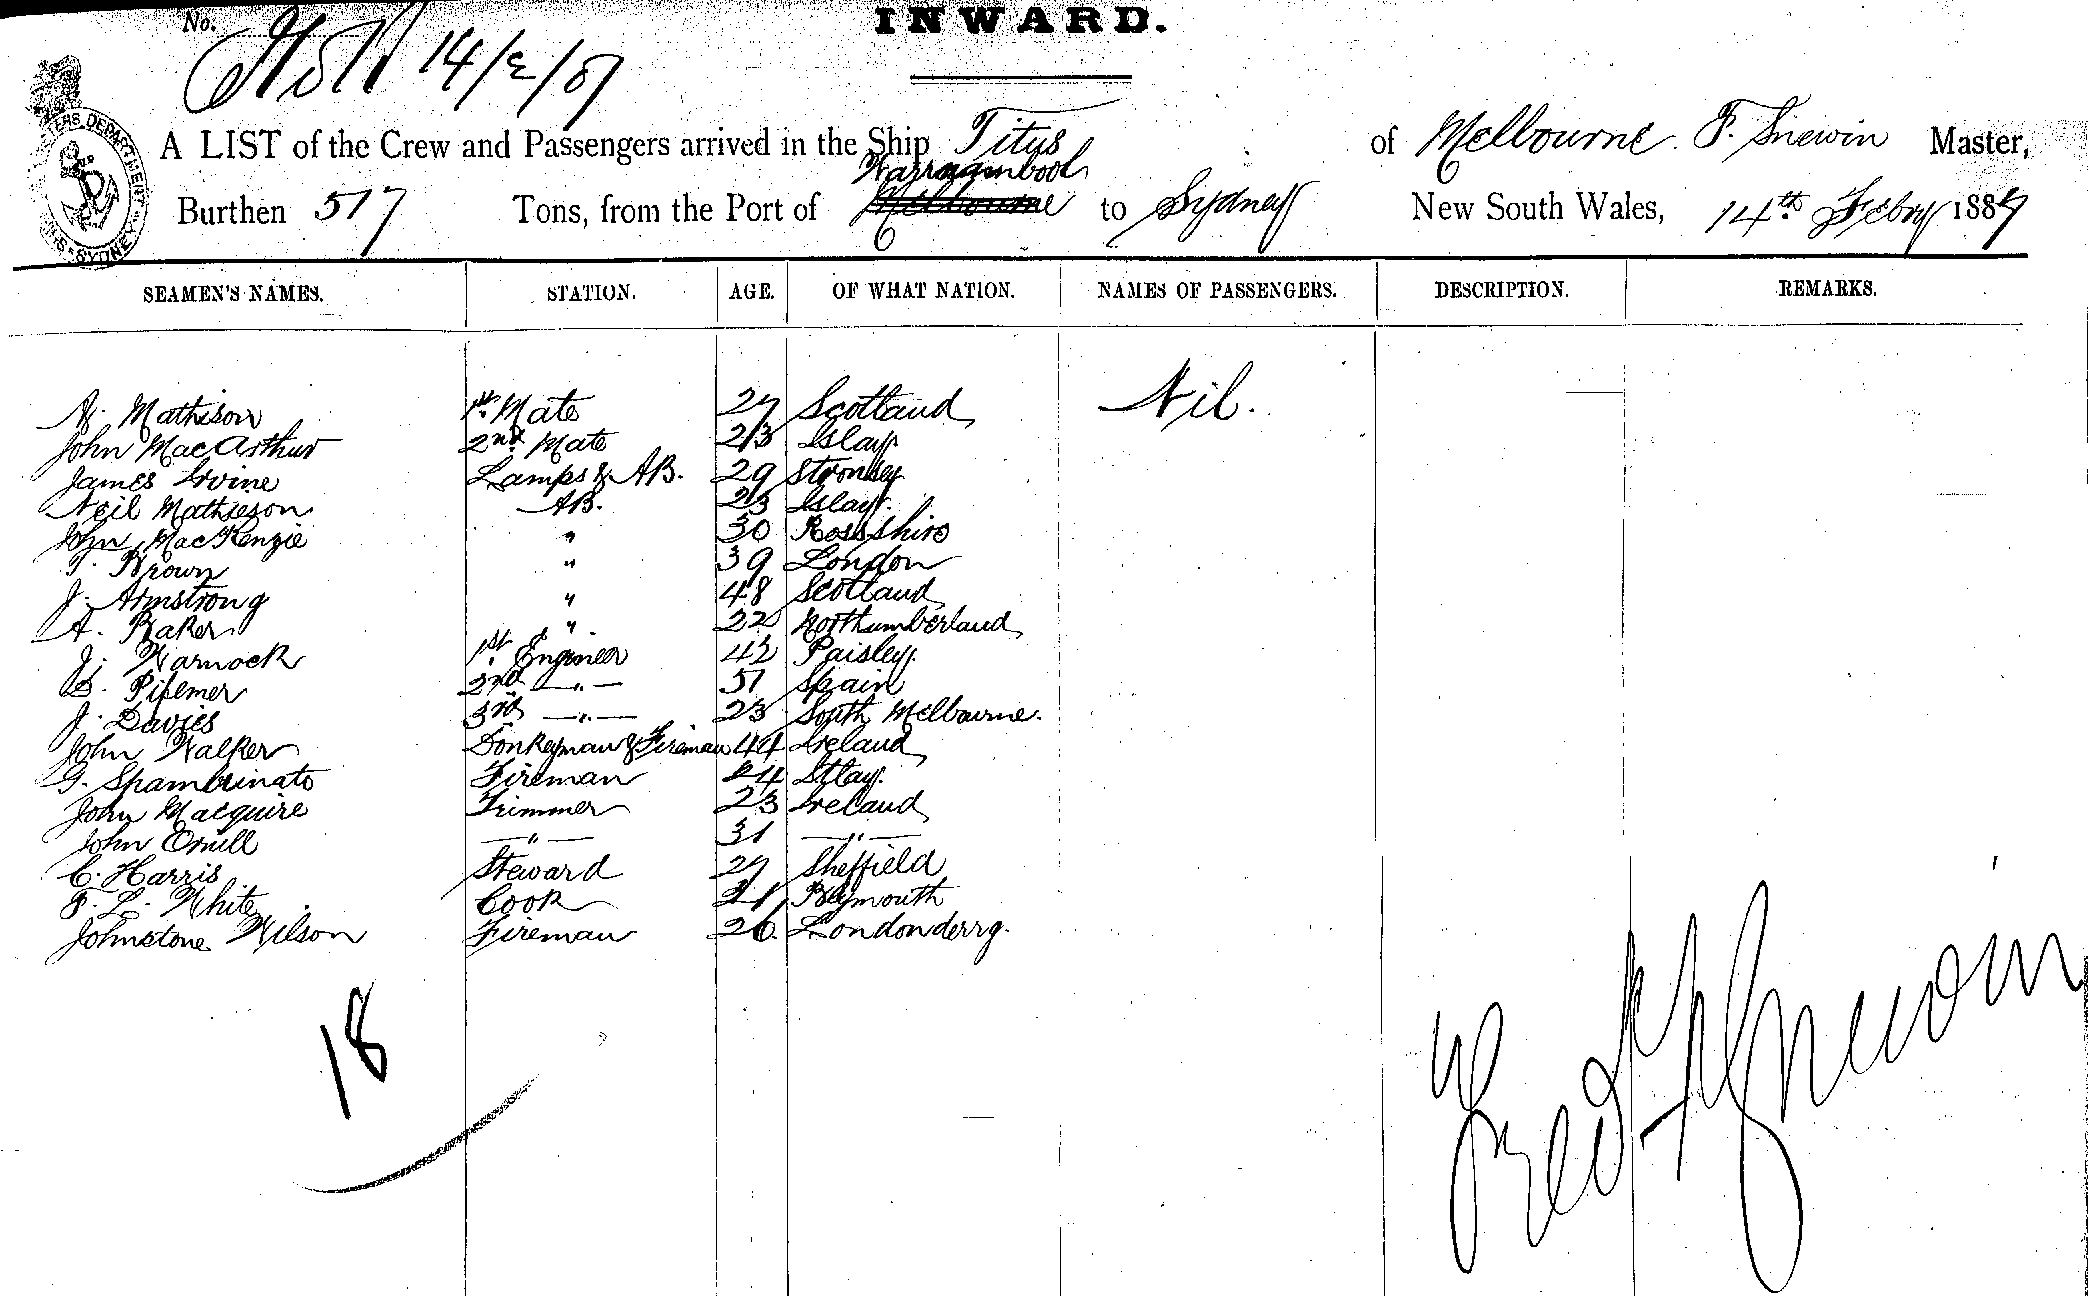 No.
INWARD.
14/2/87
A LIST of the Crew and Passengers arrived in the Ship Titus of Melbourne F. Snewin Master,
Warrnambool
Burthen 517 Tons, from the Port of Melbourne to Sydney New South Wales, 14th Febry 1887
SEAMEN'S NAMES. STATION. AGE. OF WHAT NATION. NAMES OF PASSENGERS. DESCRIPTION. REMARKS.
N. Mathison 1st Mate 27 Scotland Nil.
John MacArthur 2nd Mate 23 Islay
James Irvine Lamps & AB. 29 Stronsey
Neil Mathieson AB. 23 Islay.
John MacKenzie " 30 Rossshire
T. Brown " 39 London
J. Armstrong " 48 Scotland
A. Baker " 22 Northumberland
J. Warnock 1st Engineer 42 Paisley.
2nd — " — 51 Spain
J. Davies 3rd — " — 23 South Melbourne.
John Walker Donkeyman & Fireman 44 Ireland
G. Spambinato Fireman 24 Itlay.
John Macquire Trimmer 23 Ireland
John Oneill — " — 31 — " —
C. Harris Steward 27 Sheffield
F. L. White Cook 21 Plymouth
Johnstone Wilson Fireman 26 Londonderry.
18
Fred Snewin